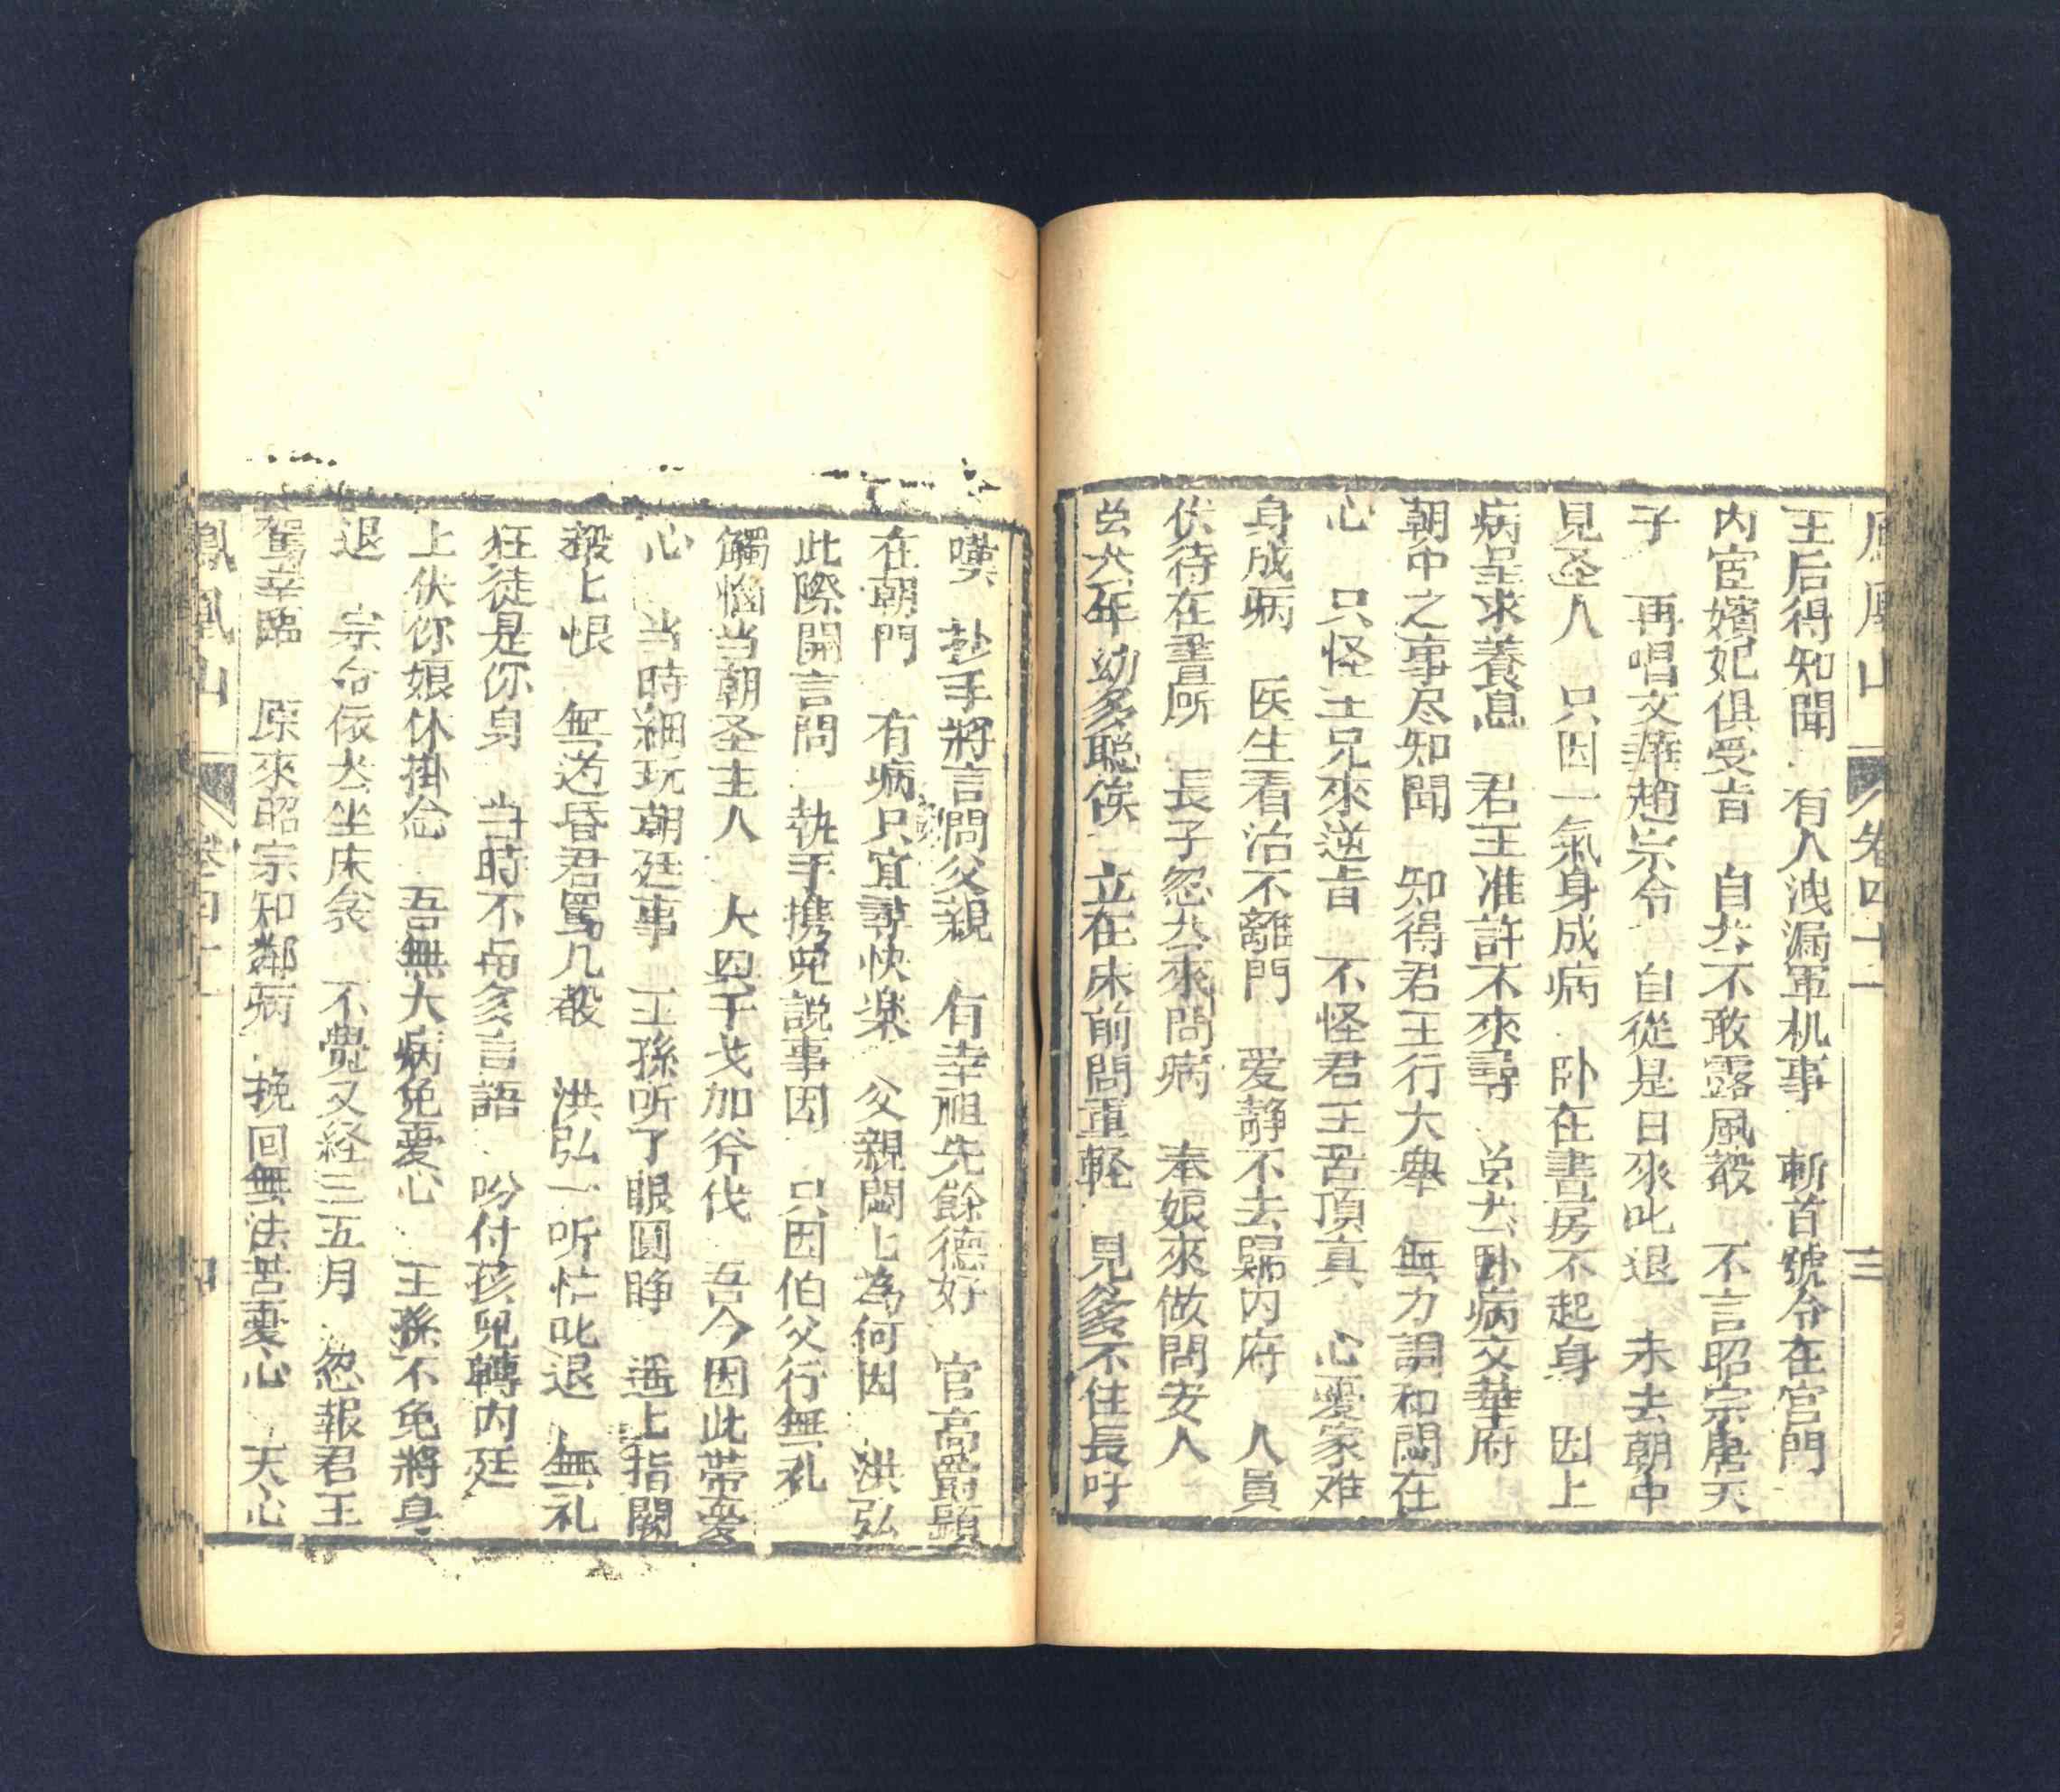 鳳凰山 卷四十二 三
王后得知聞 有人洩漏軍机事 斬首號令在宫門
内宦嬪妃俱受旨 自 不敢露風声 不言昭宗唐天
子 再唱文華趙宗令 自從是日來叱退 未去朝中
見圣人 只因一氣身成病 卧在書房不起身 因上
病呈求養息 君王准許不來尋 卧病文華府
朝中之事尽知聞 知得君王行大舉 無力調和闷在
心 只怪王兄來逆旨 不怪君王呂頂真 心憂家难
身成病 医生看治不離門 爱静不去歸内府 人員
伏待在書所 長子忽 來問病 奉娘來做問安人
年幼多聪俊 立在床前問重軽 見爹不住長吁
嘆 抄手將言問父親 有幸祖先餘德好 官高爵顕
在朝門 有病只宜尋快楽 父親闷上為何因 洪弘
此際開言問 執手携児説事因 只因伯父行無礼
觸惱当朝圣主人 大興干戈加斧伐 吾今因此带憂
心 当時細玩朝廷事 王孫听了眼圓睁 遥上指闕
殺上恨 無道昏君罵几声 洪弘一听忙叱退 無礼
狂徒是你身 当時不与多言語 吩付孩児轉内廷
上伏你娘休掛念 吾無大病免憂心 王孫不免將身
退 宗令依 坐床衾 不覺又経三五月 忽報君王
駕幸臨 原來昭宗知鄰病 挽回無法苦憂心 天心
鳳凰山 卷四十二 四